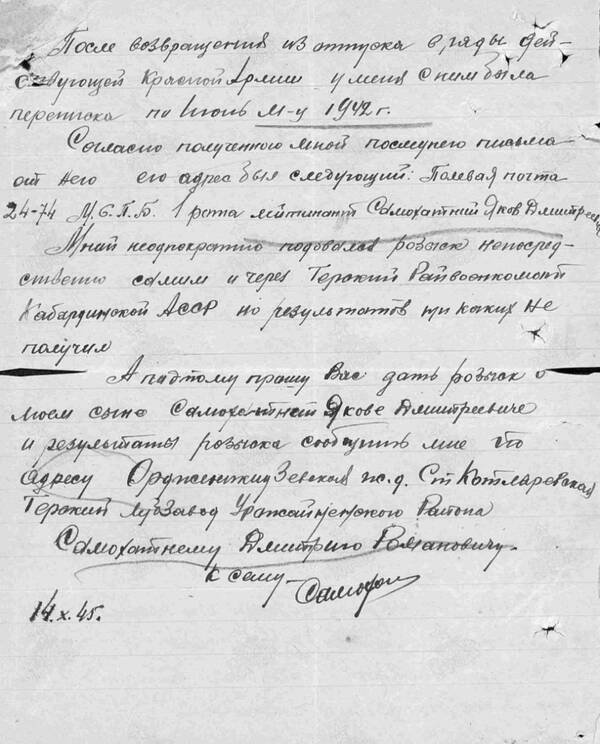 После возвращения из отпуска в ряды дей-
ствующей Красной Армии у меня с ним была
переписка по Июнь м-ц 1942 г.
Согласно полученного мной последнего письма
от него его адрес был следующий: Полевая почта
24-74 М.С.П.Б. 1 рота лейтинант Самохатний Яков Дмитреевич
Мной неоднократно подовался розыск непосред-
ственно самим и через Терский Райвоенкомат
Кабардинской АССР но результатов ни каких не
получил
А паэтому прошу Вас дать розыск о
моем сыне Самохатнем Якове Дмитреевиче
и результаты розыска сообщить мне по
адресу Орджоникидзевская ж.д. Ст Котляревская
Терский Завод Урожайненского Района
Самохатнему Дмитрию Романовичу.
к сему-
14.X.45.